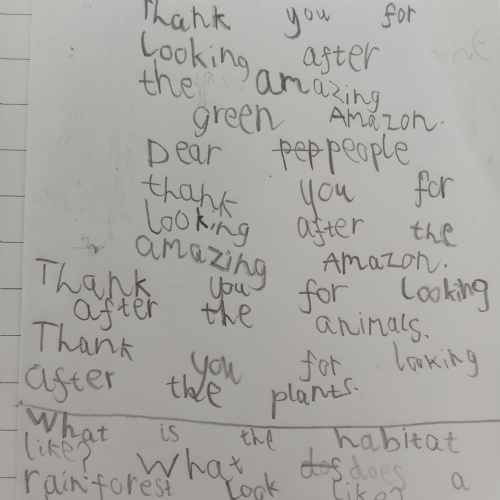 Thank you for
looking after the
the amazing
green Amazon.
Dear pep people
thank you for
looking after the
amazing Amazon.
Thank you for looking
after the animals.
Thank you for looking
after the plants.
What is the habitat
like? What dos does a
rainforest look like?